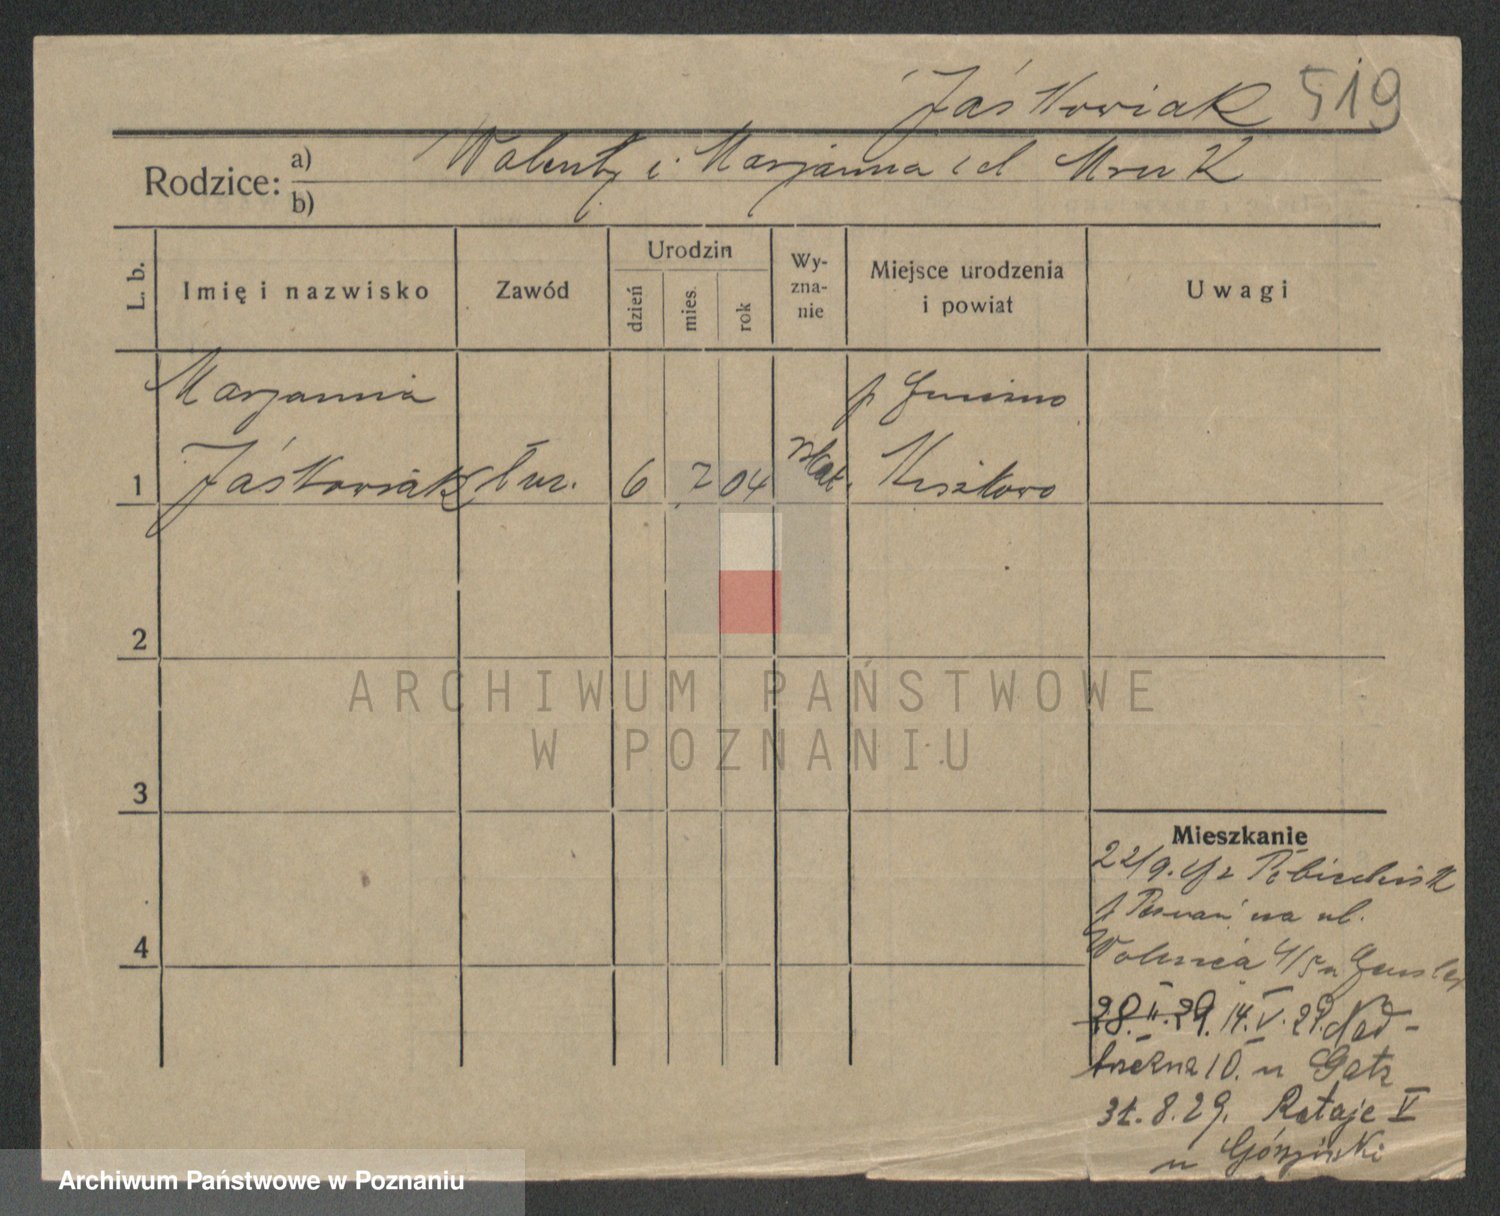 Jaśkowiak 519
Rodzice: a) Walenty i Marjanna i d Mruk
b)
L. b. Imię i nazwisko Zawód Urodzin dzień mies. rok Wyznanie Miejsce urodzenia i powiat Uwagi
Marjanna p Gniezno
1 Jaśkowiak służ. 6 7 04 Kat. Kiszkowo
2
ARCHIWUM PAŃSTWOWE
W POZNANIU
3
Mieszkanie
22/9. z Pobiedzisk
p Poznań na ul.
4 Woźnica 4/5 u
28.II.29. 14.V.29. Nad-
brzeżna 10. u Gatz
31.8.29. Rataje V
u Górzyński
Archiwum Państwowe w Poznaniu